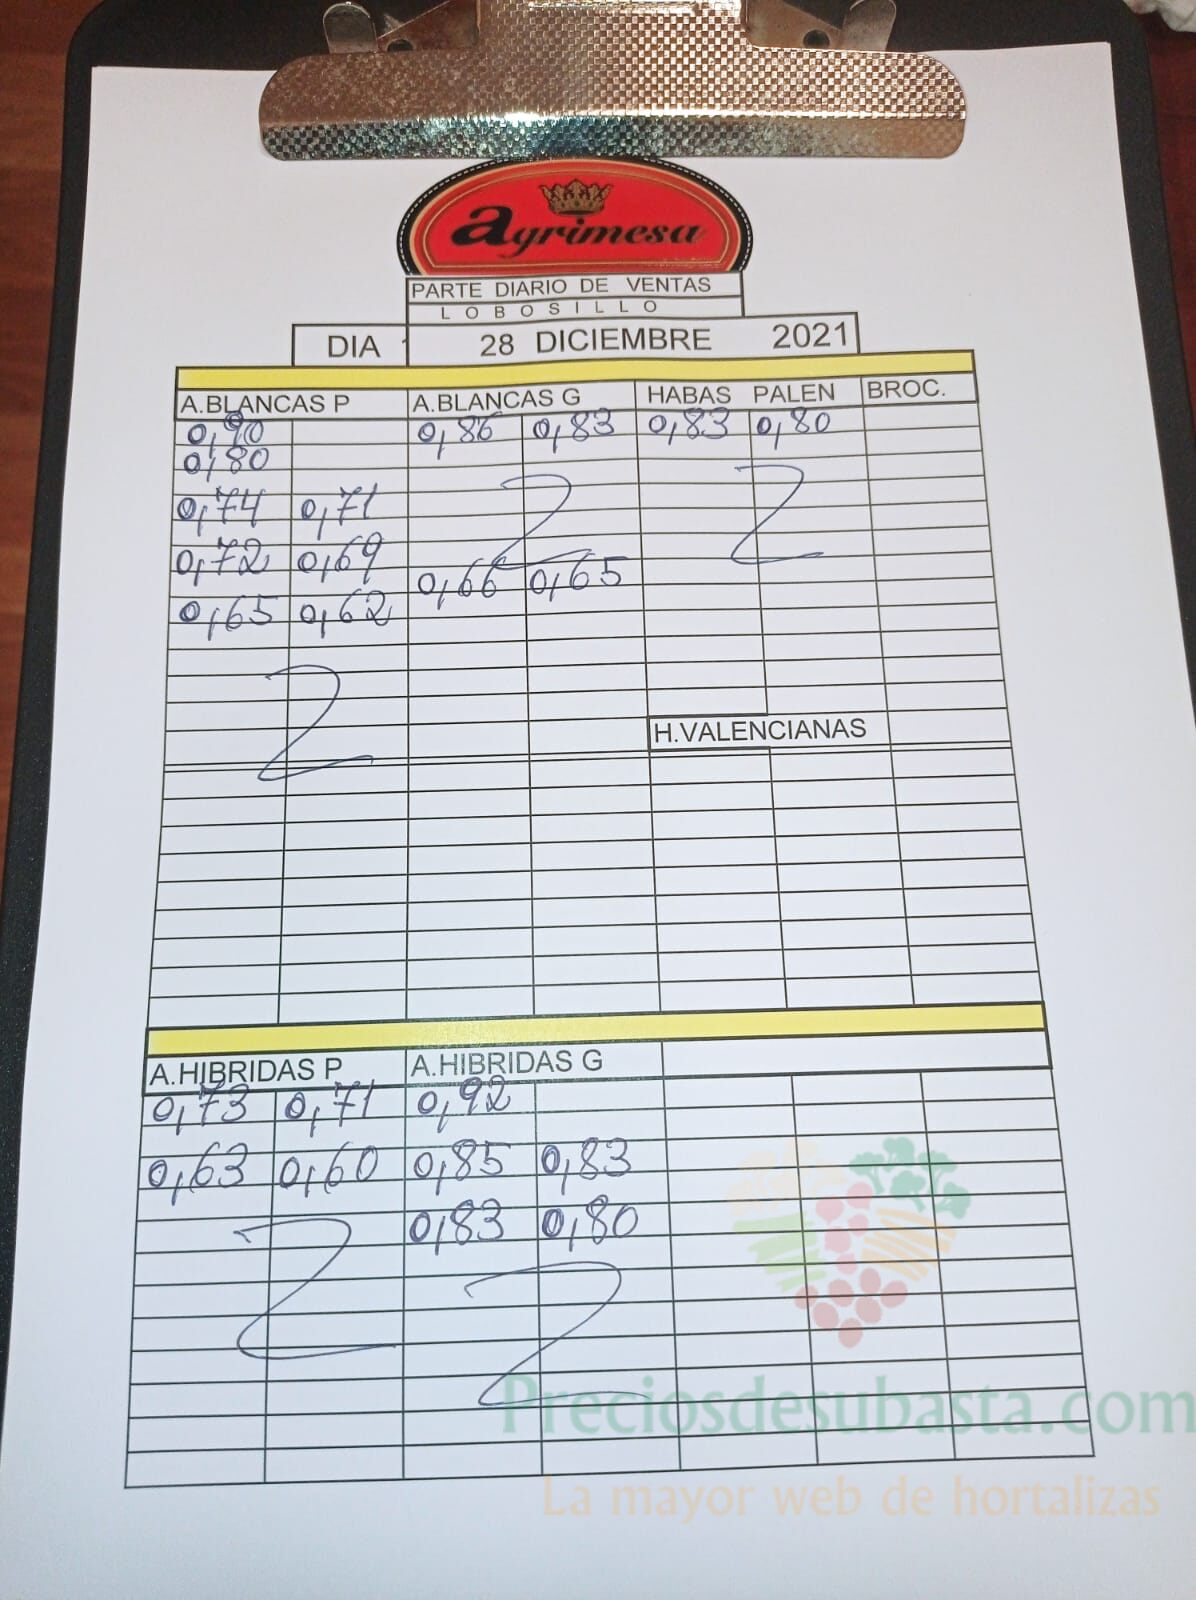 Agrimesa
PARTE DIARIO DE VENTAS
LOBOSILLO
DIA 28 DICIEMBRE 2021
A.BLANCAS P A.BLANCAS G HABAS PALEN BROC.
0,90 0,86 0,83 0,83 0,80
0,80
0,74 0,71
0,72 0,69
0,66 0,65
0,65 0,62
H.VALENCIANAS
A.HIBRIDAS P A.HIBRIDAS G
0,73 0,71 0,92
0,63 0,60 0,85 0,83
0,83 0,80
Preciosdesubasta.com
La mayor web de hortalizas